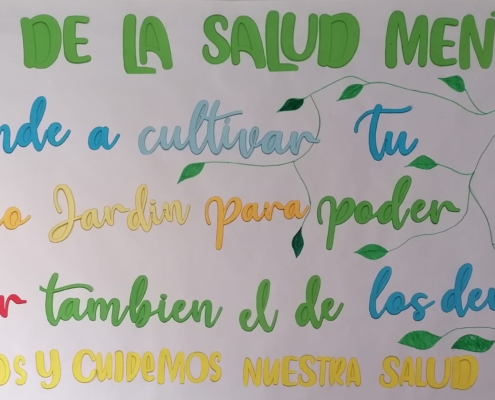 DE LA SALUD MEN
nde a cultivar tu
o Jardin para poder
r tambien el de los de
OS Y CUIDEMOS NUESTRA SALUD